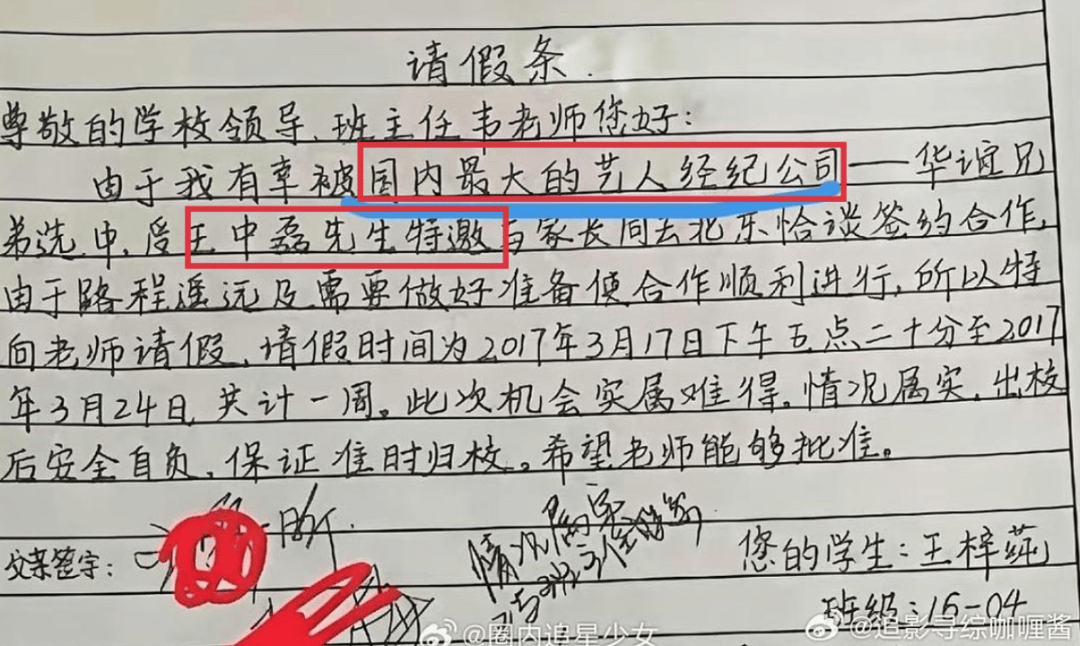 请假条.
尊敬的学校领导、班主任韦老师您好:
由于我有幸被国内最大的艺人经纪公司——华谊兄
弟选中,受王中磊先生特邀与家长同去北京恰谈签约合作,
由于路程遥远及需要做好准备使合作顺利进行,所以特
向老师请假,请假时间为2017年3月17日下午五点二十分至2017
年3月24日,共计一周。此次机会实属难得,情况属实,出校
后安全自负,保证准时归校。希望老师能够批准。
情况属实
父亲签字:
您的学生:王梓莼
班级:15-04
@圈内追星少女
@追影寻综咖喱酱